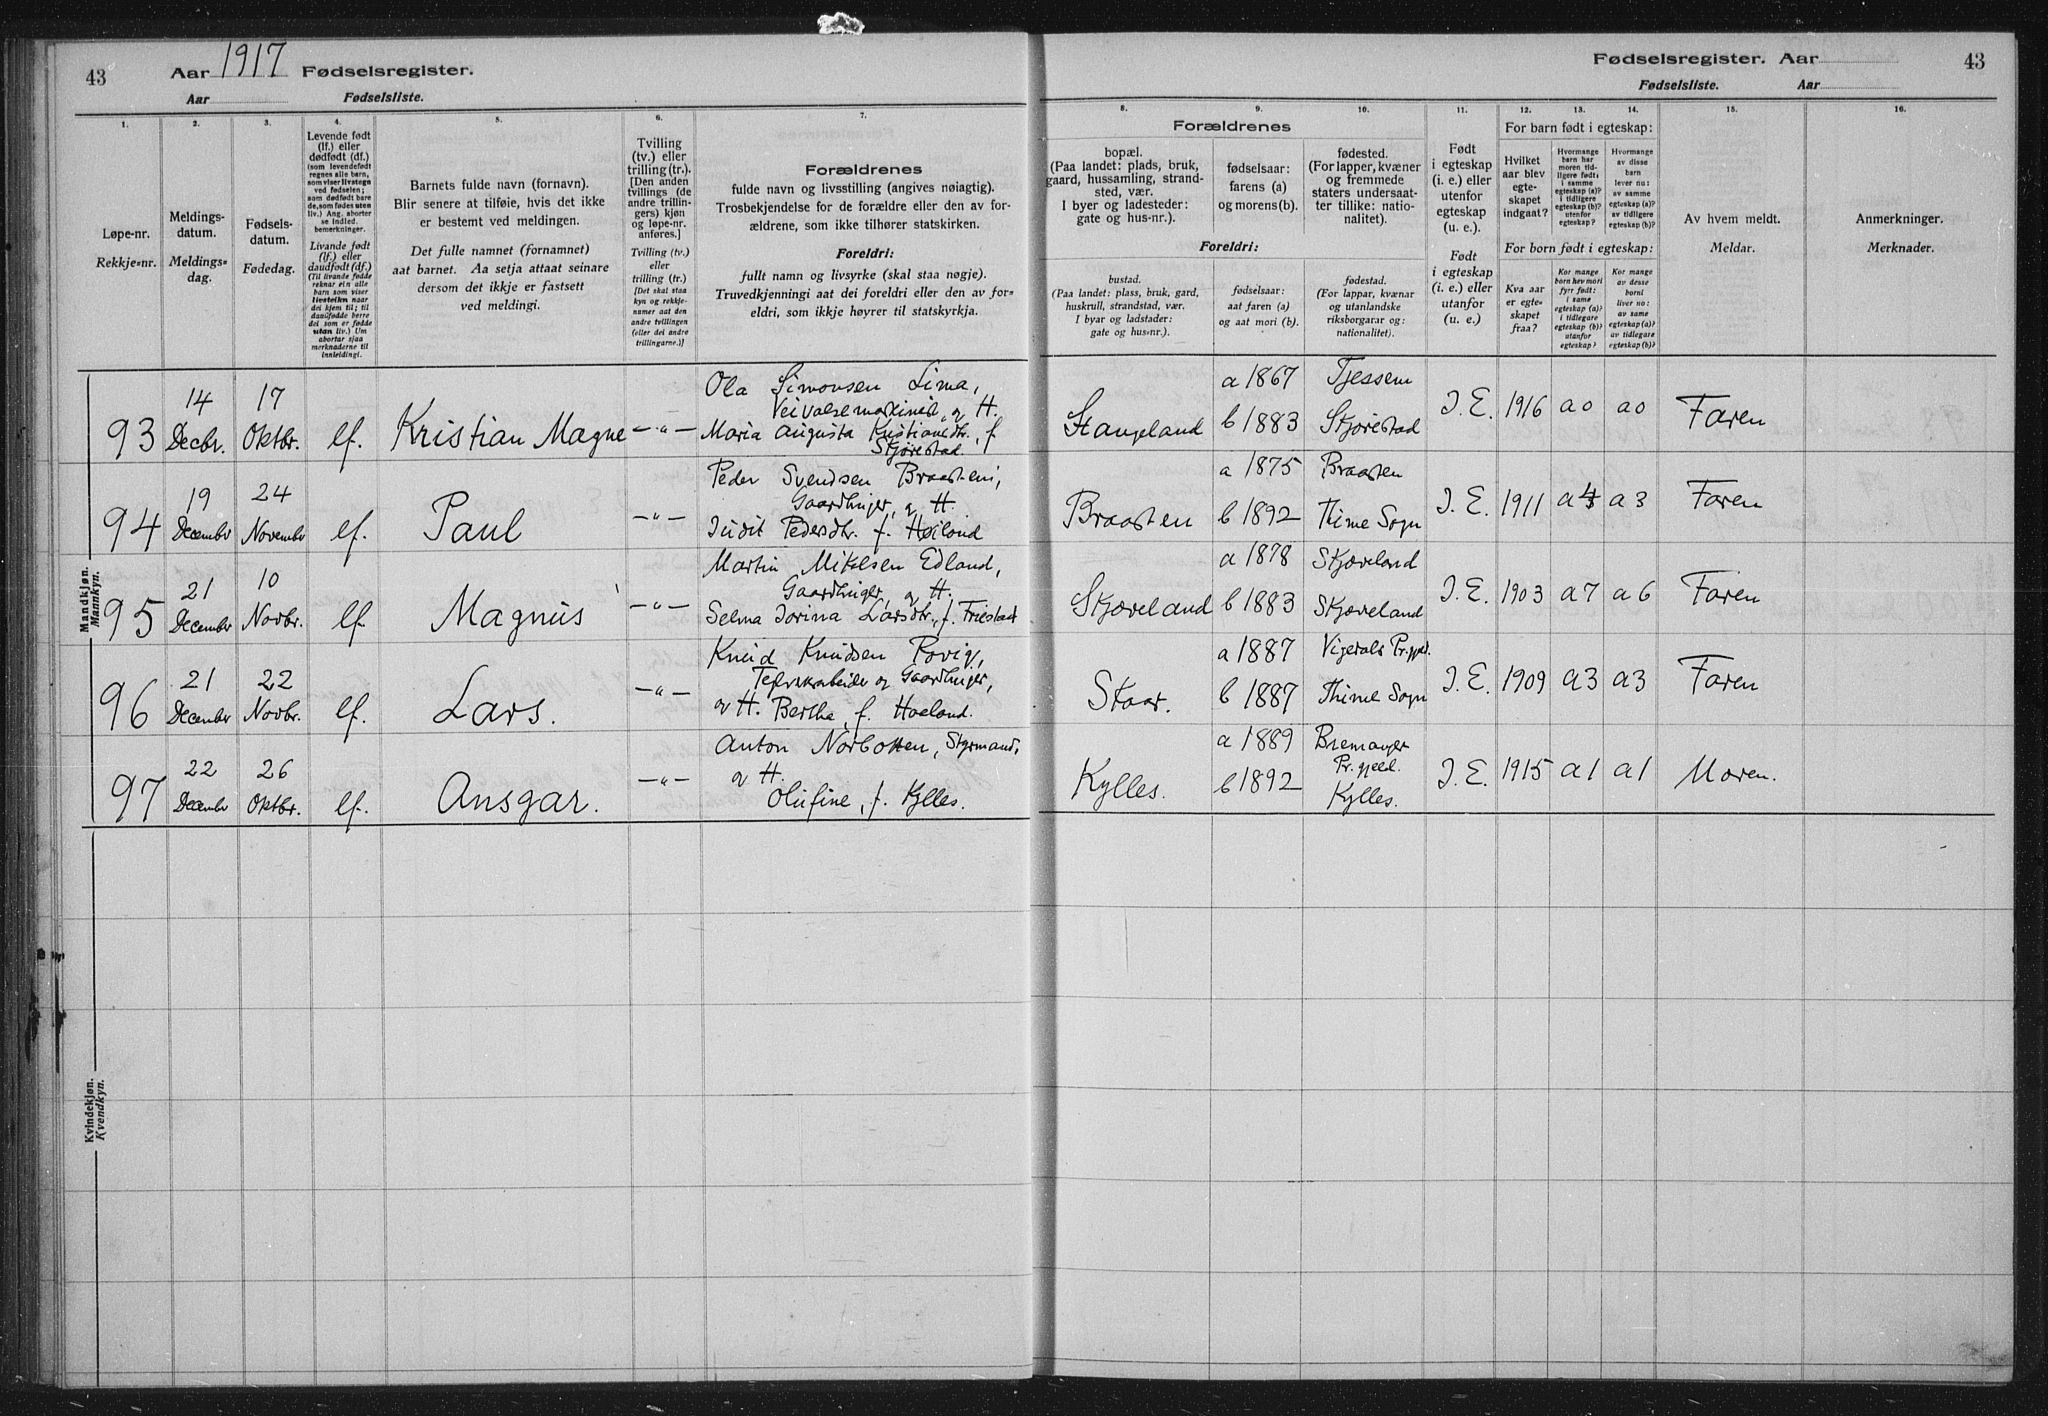 43
Aar 1917 Fødselsregister.
Aar Fødselsliste.
Fødselsregister. Aar
43
Fødselsliste. Aar
1.
Løpe-nr.
Rekkje=nr.
2.
Meldings-
datum.
Meldings=
dag.
3.
Fødsels-
datum.
Fødedag.
4.
Levende født
(lf.) eller
dødfødt (df.)
(som levendefødt
regnes alle barn,
som viser livstegn
ved fødselen;
som dødfødt bare
de, som fødes uten
liv.) Ang. aborter
se indled.
bemerkninger.
Livande født
(lf.) eller
daudfødt (df.)
(Til livande fødde
reknar ein alle
barn som viser
livsteikn naar
dei kjem til; til
daudfødde berre
dei som er fødde
utan liv.) Um
abortar sjaa
merknaderne til
innleidingi.
5.
Barnets fulde navn (fornavn).
Blir senere at tilføie, hvis det ikke
er bestemt ved meldingen.
Det fulle namnet (fornamnet)
aat barnet. Aa setja attaat seinare
dersom det ikkje er fastsett
ved meldingi.
6.
Tvilling
(tv.) eller
trilling (tr.).
[Den anden
tvillings (de
andre trillin-
gers) kjøn
og løpe-nr.
anføres.]
Tvilling (tv.)
eller
trilling (tr.)
[Det skal staa
kyn og rekkje-
numer aat den
andre tvillingen
(eller dei andre
trillingarne.)]
7.
Forældrenes
fulde navn og livsstilling (angives nøiagtig).
Trosbekjendelse for de forældre eller den av for-
ældrene, som ikke tilhører statskirken.
Foreldri:
fullt namn og livsyrke (skal staa nøgje).
Truvedkjenningi aat dei foreldri eller den av for=
eldri, som ikkje høyrer til statskyrkja.
8.
9.
10.
Forældrenes
bopæl.
(Paa landet: plads, bruk,
gaard, hussamling, strand-
sted, vær.
I byer og ladesteder:
gate og hus-nr.).
fødselsaar:
farens (a)
og morens(b).
fødested.
(For lapper, kvæner
og fremmede
staters undersaat-
ter tillike: natio-
nalitet).
Foreldri:
bustad.
(Paa landet: plass, bruk, gard,
huskrull, strandstad, vær.
I byar og ladstader:
gate og hus=nr.).
fødselsaar:
aat faren (a)
og aat mori (b).
fødestad.
(For lappar, kvænar
og utanlandske
riksborgarar og:
nationalitet).
11.
Født
i egteskap
(i. e.) eller
utenfor
egteskap
(u. e.).
Født
i egteskap
(i. e.) eller
utanfor
(u. e.)
12.
13.
14.
For barn født i egteskap:
Hvilket
aar blev
egte-
skapet
indgaat?
Hvormange
barn har
moren tid-
ligere født:
i samme
egteskap (a)?
i tidligere
egteskap (b)?
utenfor
egteskap?
Hvormange
av disse
barn
lever nu:
av samme
egteskap (a)?
av tidligere
egteskap (b)?
For born født i egteskap:
Kva aar
er egte=
skapet
fraa?
Kor mange
born hev mori
fyrr født:
i same
egteskap (a)?
i tidlegare
egteskap (b)?
utanfor
egteskap?
Kor mange
av desse
borni
liver no:
av same
egteskap (a)?
av tidlegare
egteskap (b)?
15.
Av hvem meldt.
Meldar.
16.
Anmerkninger.
Merknader.
Mandkjøn.
Mannkyn.
93
14
Decbr.
17
Oktbr.
lf.
Kristian Magne
—"—
Ola Simonsen Lima,
Veivalsemaskinist, og H.
Maria Augusta Kristiansdtr., f
Skjørestad.
Stangeland
a 1867
b 1883
Tjessem
Skjørestad
I. E.
1916
a 0
a 0
Faren
94
19
December
24
November
lf.
Paul
—"—
Peder Svendsen Braasteni,
Gaardbruger, og H.
Judit Pedersdtr. f. Høiland
Braasten
a 1875
b 1892
Braasten
Thime Sogn
I. E.
1911
a 3
Faren
95
21
December
10
Novbr.
lf.
Magnus
—"—
Martin Mikelsen Edland,
Gaardbruger, og H.
Selma Jorina Larsdtr., f. Friestad
Skjæveland
a 1878
b 1883
Skjæveland
Skjæveland
I. E.
1903
a 7
a 6
Faren
96
21
December
22
Novbr.
lf.
Lars.
—"—
Knud Knudsen Rovig,
Teglverksarbeider og Gaardbruger,
og H. Berthe, f. Haaland.
Staar.
a 1887
b 1887
Vigedals Pr.gjæ.
Thime Sogn
I. E.
1909
a 3
a 3
Faren
97
22
December
26
Oktbr.
lf.
Ansgar.
—"—
Anton Norbotten, Styrmand,
og H.
Olufine, f. Kylles.
Kylles.
a 1889
b 1892
Bremanger
Pr.gjeld.
Kylles.
I. E.
1915
a 1
a 1
Moren.
Kvindekjøn.
Kvendkyn.